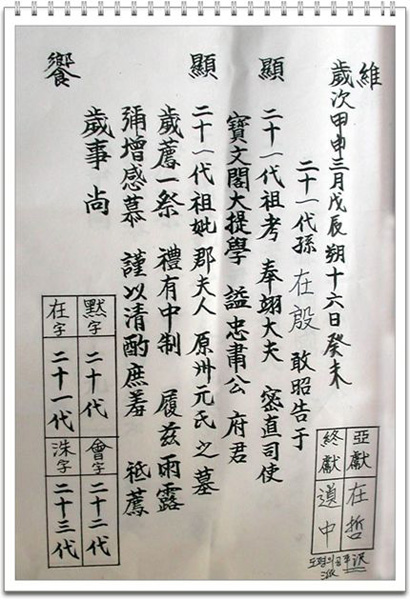 維
歲次甲申三月戊辰朔十六日癸未
二十一代孫 在殷 敢昭告于
顯
二十一代祖考 奉翊大夫 密直司使
寶文閣大提學 諡忠肅公 府君
顯
二十一代祖妣 郡夫人 原州元氏之墓
歲薦一祭 禮有中制 履玆雨露
彌增感慕 謹以清酌庶羞 祗薦
歲事 尚
饗
亞獻 在哲
終獻 道中
默字 二十代 會字 二十二代
在字 二十一代 洙字 二十三代